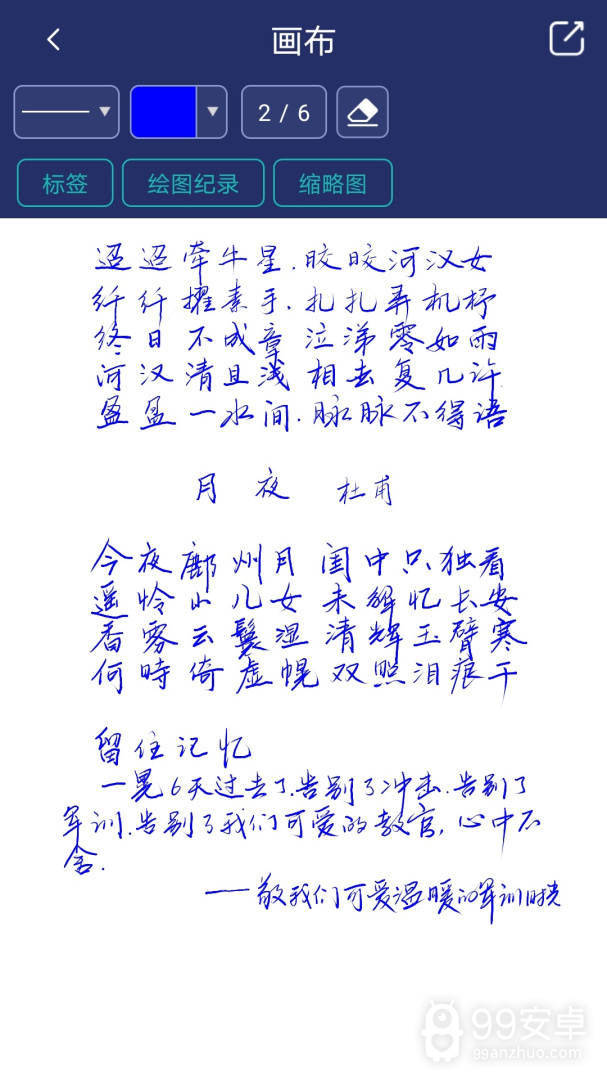 画布
2 / 6
标签 绘图纪录 缩略图
迢迢牵牛星.皎皎河汉女
纤纤擢素手.扎扎弄机杼
终日不成章 泣涕零如雨
河汉清且浅 相去复几许
盈盈一水间.脉脉不得语
月夜 杜甫
今夜鄜州月 闺中只独看
遥怜小儿女 未解忆长安
香雾云鬓湿 清辉玉臂寒
何時倚虚幌 双照泪痕干
留住记忆
一晃6天过去了.告别了冲击.告别了
军训.告别了我们可爱的教官,心中不
舍.
——敬我们可爱温暖的军训时光
99安卓
99anzhuo.com